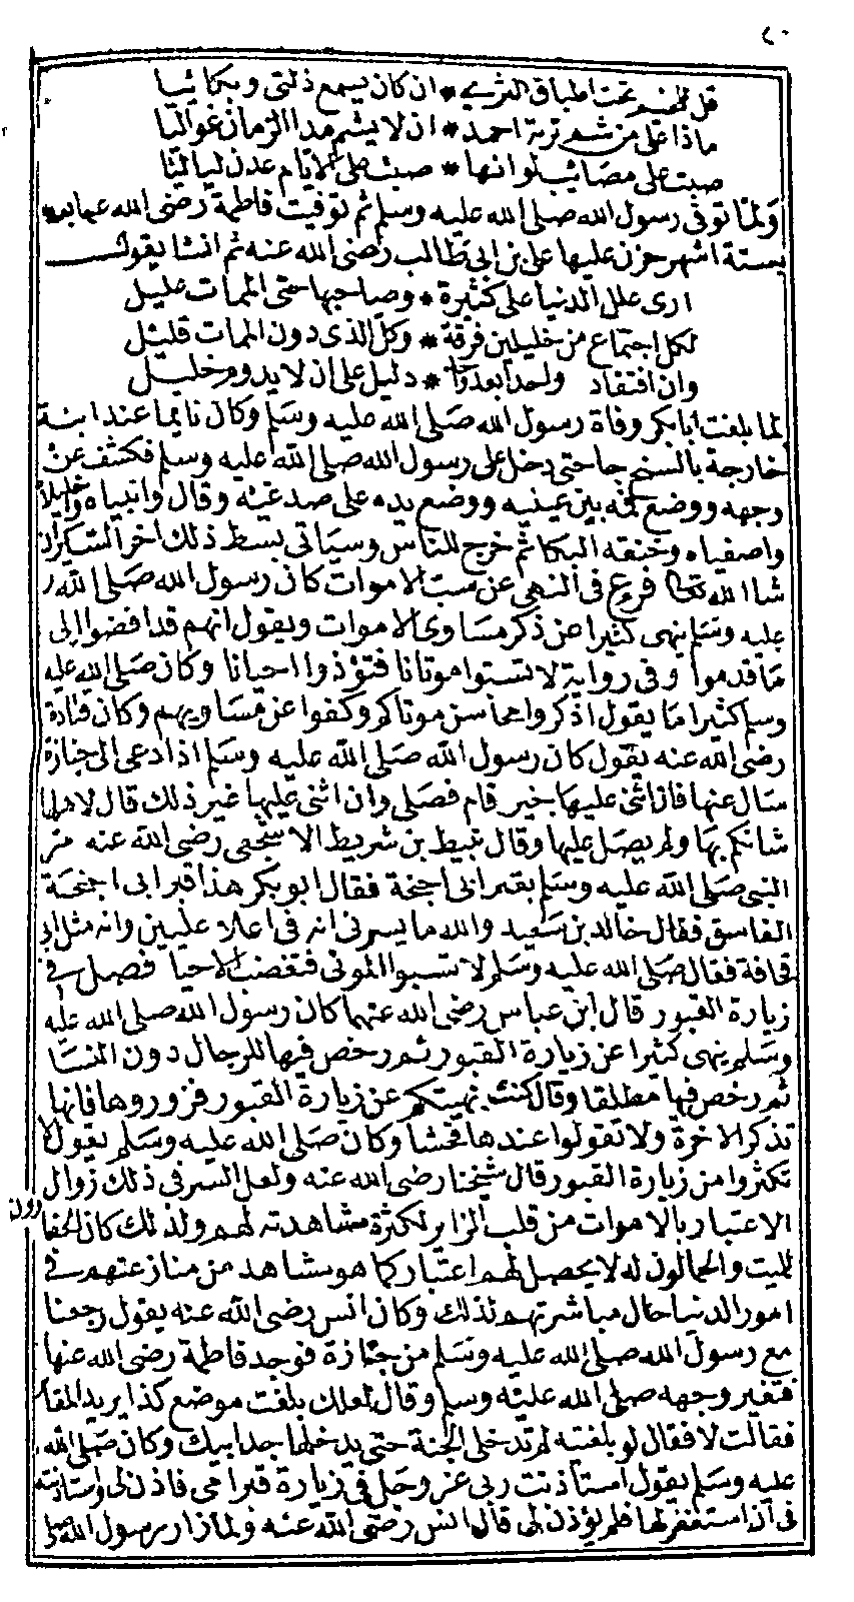 ٤٠
قل للمغيب تحت اطباق الثرى * ان كان يسمع ذلتى وبكائيا
ماذا على من شم تربة احمد * ان لا يشم مدا الزمان غواليا
صبت على مصائب لو انها * صبت على الايام عدن لياليا
ولما توفى رسول الله صلى الله عليه وسلم ثم توفيت فاطمة رضى الله عنها بعده
بستة اشهر حزن عليها على بن ابى طالب رضى الله عنه ثم انشا يقول
ارى علل الدنيا على كثيرة * وصاحبها حتى الممات عليل
لكل اجتماع من خليلين فرقة * وكل الذى دون الممات قليل
وان افتقاد واحدا بعد * دليل على ان لا يدوم خليل
لما بلغت ابابكر وفاة رسول الله صلى الله عليه وسلم وكان نايما عند ابنة
خارجة بالسنح جا حتى دخل على رسول الله صلى الله عليه وسلم فكشف عن
وجهه ووضع فمه بين عينيه ووضع يده على صدغيه وقال وانبياه واخليلاه
واصفياه وخنقه البكا ثم خرج للناس وسياتى بسط ذلك اخر السير ان
شا الله تعالى فرع فى النهى عن سب الاموات كان رسول الله صلى الله
عليه وسلم ينهى كثيرا عن ذكر مساوى الاموات ويقول انهم قد افضوا الى
ما قدموا وفى رواية لا تسبوا موتانا فتؤذوا احيانا وكان صلى الله عليه
وسلم كثيرا ما يقول اذكروا محاسن موتاكم وكفوا عن مساويهم وكان قتادة
رضى الله عنه يقول كان رسول الله صلى الله عليه وسلم اذا دعى الى جنازة
سال عنها فان اثنى عليها بخير قام فصلى وان اثنى عليها غير ذلك قال لاهلها
شانكم بها ولم يصل عليها وقال نبيط بن شريط الاشجعى رضى الله عنه مر
النبى صلى الله عليه وسلم بقبر ابى احيحة فقال ابو بكر هذا قبر ابى احيحة
الفاسق فقال خالد بن سعيد والله ما يسرنى انه فى اعلا عليين وانه مثل ابى
قحافة فقال صلى الله عليه وسلم لا تسبوا الموتى فتغضب الاحيا فصل فى
زيارة القبور قال ابن عباس رضى الله عنهما كان رسول الله صلى الله عليه
وسلم ينهى كثيرا عن زيارة القبور ثم رخص فيها للرجال دون النسا
ثم رخص فيها مطلقا وقال كنت نهيتكم عن زيارة القبور فزوروها فانها
تذكر الاخرة ولا تقولوا عندها فحشا وكان صلى الله عليه وسلم يقول لا
تكثروا من زيارة القبور قال شيخنا رضى الله عنه ولعل السر فى ذلك زوال
الاعتبار بالاموات من قلب الزاير لكثرة مشاهدته لهم ولذلك كان الحفا
رون
للميت والحمالون له لا يحصل لهم اعتبار كما هو مشاهد من منازعتهم فى
امور الدنيا حال مباشرتهم لذلك وكان انس رضى الله عنه يقول رجعنا
مع رسول الله صلى الله عليه وسلم من جنازة فوجد فاطمة رضى الله عنها
فتغير وجهه صلى الله عليه وسلم وقال لعلك بلغت موضع كذا يريد المقابر
فقالت لا فقال لو بلغته لم تدخلى الجنة حتى يدخلها جد ابيك وكان صلى الله
عليه وسلم يقول استاذنت ربى عز وجل فى زيارة قبر امى فاذن لى واستاذنته
فى ان استغفر لها فلم يؤذن لى قال انس رضى الله عنه ولما زار رسول الله صلى